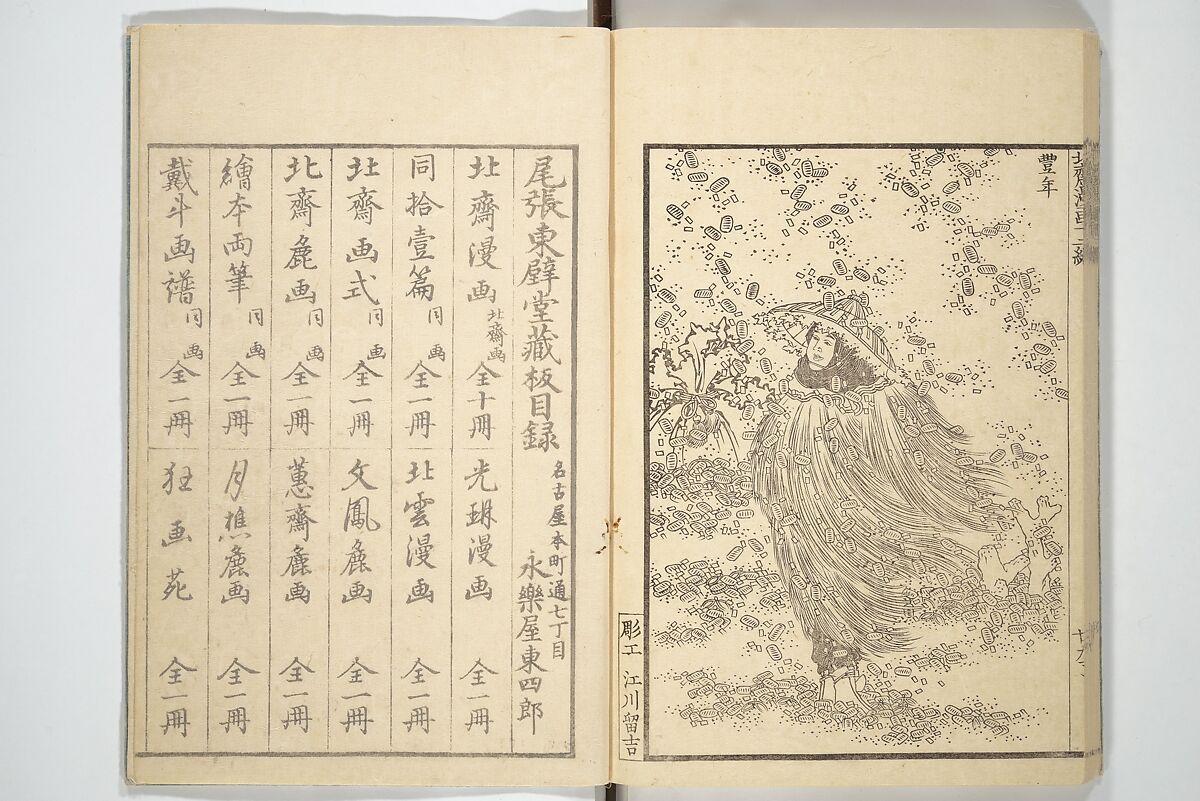 北齋漫画十二編
豊年
廿九
彫工 江川留吉
尾張東壁堂藏板目録
名古屋本町通七丁目
永樂屋東四郎
北齋漫画 北齋画 全十冊
光琳漫画 全一冊
同拾壹篇 同画 全一冊
北雲漫画 全一冊
北齋画式 同画 全一冊
文鳳麁画 全一冊
北齋麁画 同画 全一冊
蕙齋麁画 全一冊
繪本両筆 同画 全一冊
月樵麁画 全一冊
戴斗画譜 同画 全一冊
狂画苑 全一冊